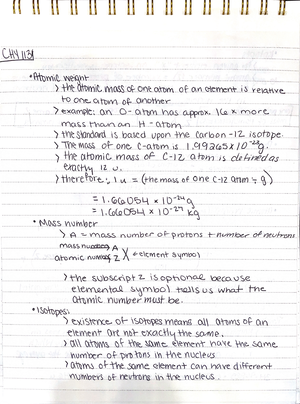 CHY 1131
• Atomic weight
> the atomic mass of one atom of an element is relative
to one atom of another
> example: an O-atom has approx. 16 x more
mass than an H-atom
> the standard is based upon the carbon-12 isotope.
> The mass of one C-atom is 1.99265 x 10⁻²³g.
> the atomic mass of C-12 atom is defined as
exactly 12 u.
> therefore: 1 u = (the mass of one C-12 atom ÷ g)
= 1.66054 x 10⁻²⁴g
= 1.66054 x 10⁻²⁷ kg
• Mass number
> A = mass number of protons + number of neutrons
mass number A
atomic number Z X ← element symbol
> the subscript Z is optional because
elemental symbol tells us what the
atomic number must be.
• Isotopes:
> existence of isotopes means all atoms of an
element are not exactly the same.
> all atoms of the same element have the same
number of protons in the nucleus
> atoms of the same element can have different
numbers of neutrons in the nucleus.